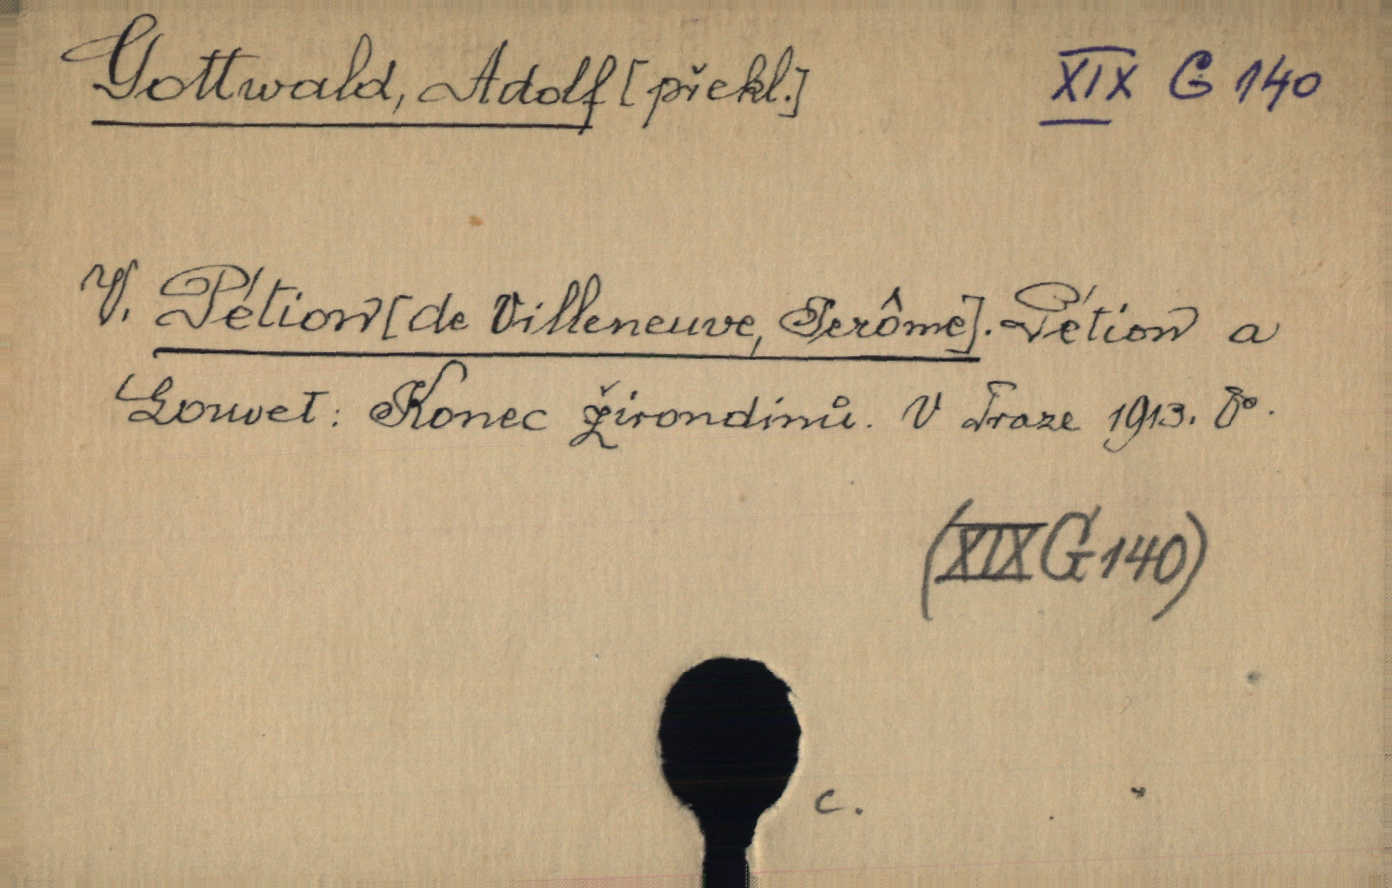 Gottwald, Adolf [překl.] XIX G 140
V. Pétion [de Villeneuve, Jerôme]. Pétion a
Louvet: Konec žirondinů. V Praze 1913. 8°.
(XIX G 140)
c.